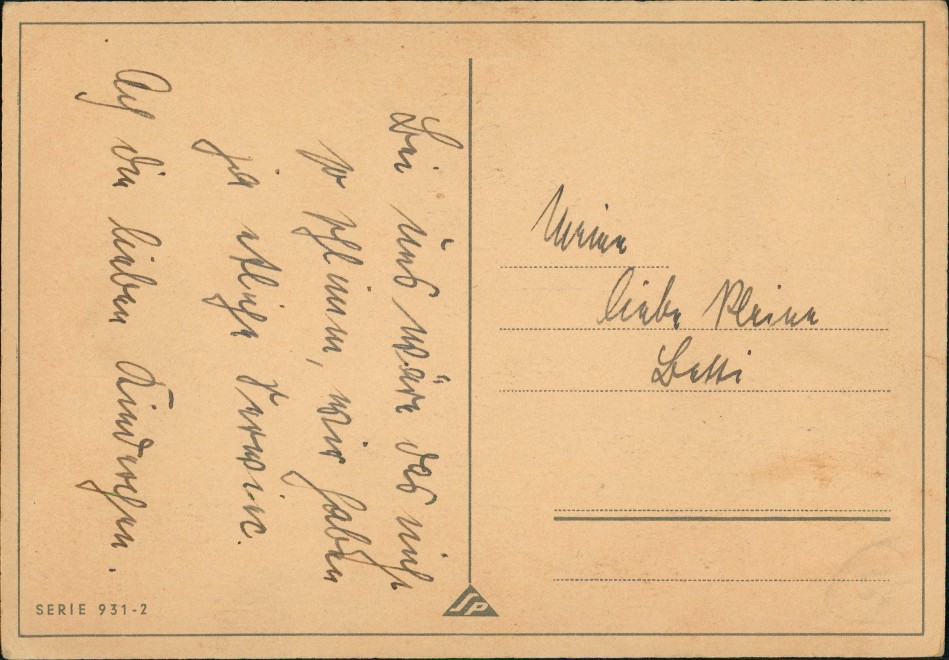 Bei uns wäre das nich
so schlimm, wir haben
ja etliche
Auf die lieben Kinderchen.
Meine
liebe kleine
Betti
SERIE 931-2
SP